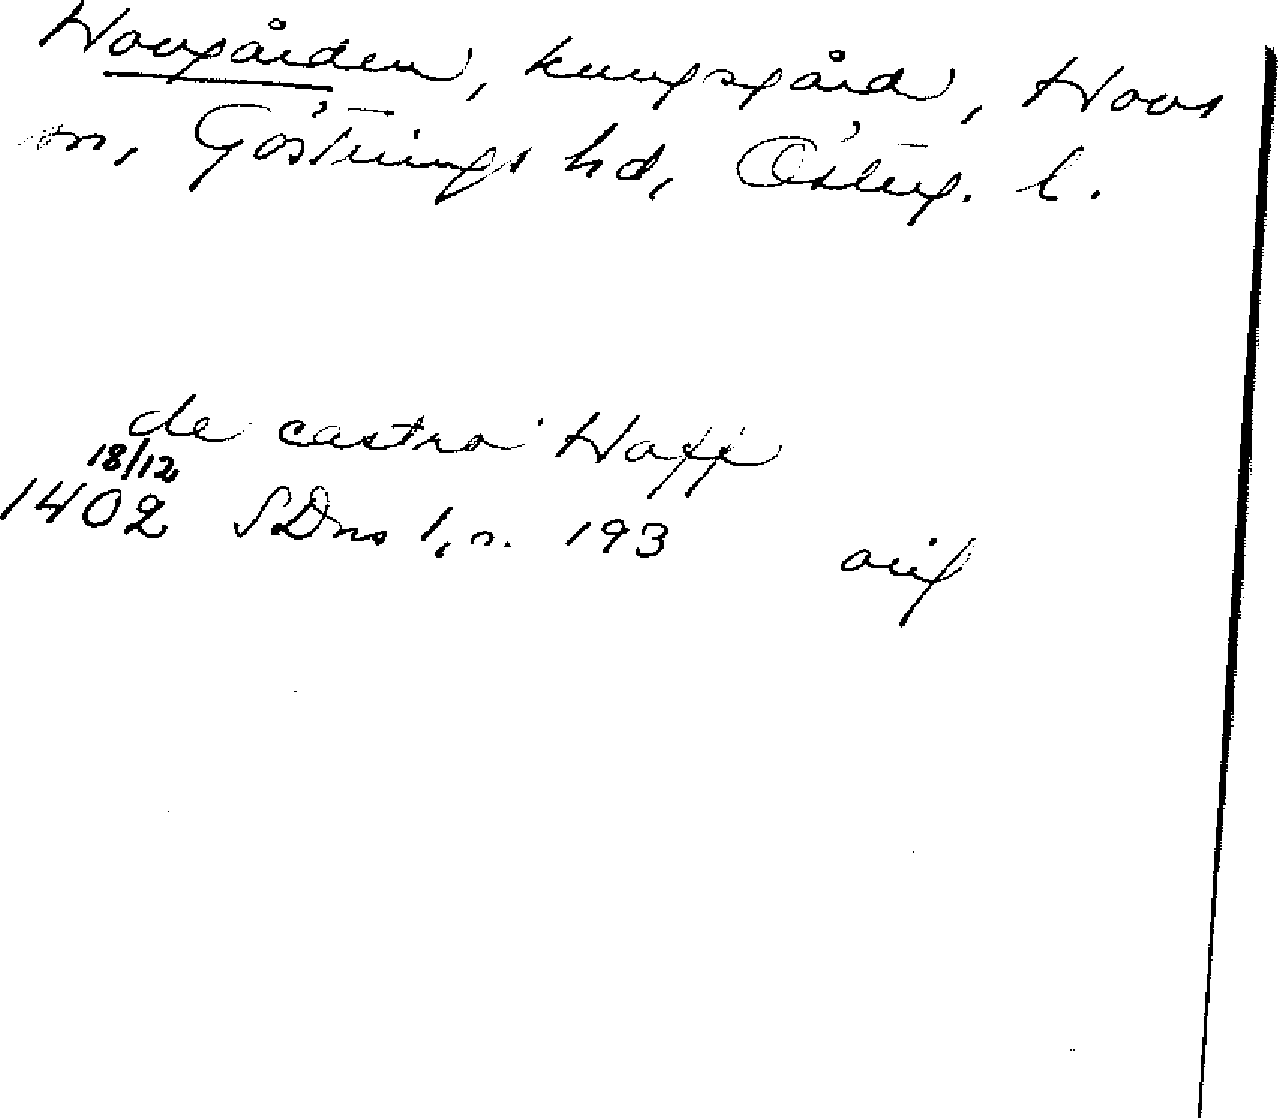 Hovgården, kungsgård, Hovs
sn, Göstrings hd, Österg. l.
de castro Hoff
18/12
1402 SDns 1, s. 193 orig